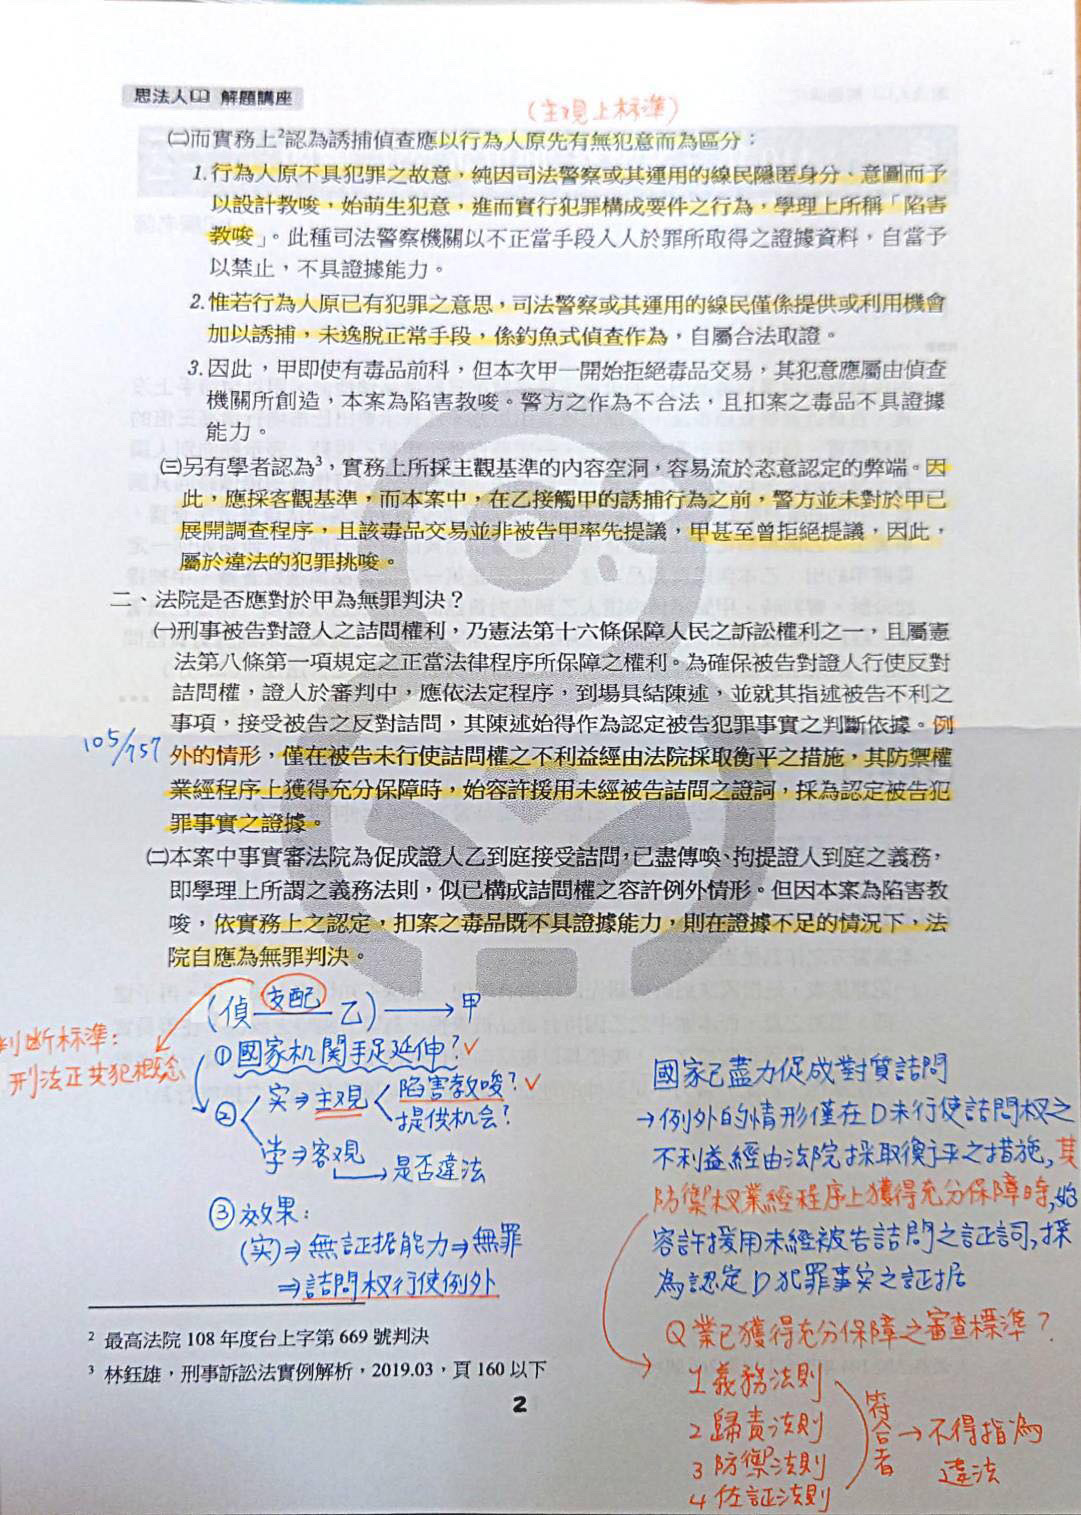 思法人 解題講座
(主觀上标準)
㈡而實務上²認為誘捕偵查應以行為人原先有無犯意而為區分：
1.行為人原不具犯罪之故意，純因司法警察或其運用的線民隱匿身分、意圖而予
以設計教唆，始萌生犯意，進而實行犯罪構成要件之行為，學理上所稱「陷害
教唆」。此種司法警察機關以不正當手段入人於罪所取得之證據資料，自當予
以禁止，不具證據能力。
2.惟若行為人原已有犯罪之意思，司法警察或其運用的線民僅係提供或利用機會
加以誘捕，未逸脫正常手段，係釣魚式偵查作為，自屬合法取證。
3.因此，甲即使有毒品前科，但本次甲一開始拒絕毒品交易，其犯意應屬由偵查
機關所創造，本案為陷害教唆。警方之作為不合法，且扣案之毒品不具證據
能力。
㈢另有學者認為³，實務上所採主觀基準的內容空洞，容易流於恣意認定的弊端。因
此，應採客觀基準，而本案中，在乙接觸甲的誘捕行為之前，警方並未對於甲已
展開調查程序，且該毒品交易並非被告甲率先提議，甲甚至曾拒絕提議，因此，
屬於違法的犯罪挑唆。
二、法院是否應對於甲為無罪判決？
㈠刑事被告對證人之詰問權利，乃憲法第十六條保障人民之訴訟權利之一，且屬憲
法第八條第一項規定之正當法律程序所保障之權利。為確保被告對證人行使反對
詰問權，證人於審判中，應依法定程序，到場具結陳述，並就其指述被告不利之
事項，接受被告之反對詰問，其陳述始得作為認定被告犯罪事實之判斷依據。例
105/757
外的情形，僅在被告未行使詰問權之不利益經由法院採取衡平之措施，其防禦權
業經程序上獲得充分保障時，始容許援用未經被告詰問之證詞，採為認定被告犯
罪事實之證據。
㈡本案中事實審法院為促成證人乙到庭接受詰問，已盡傳喚、拘提證人到庭之義務，
即學理上所謂之義務法則，似已構成詰問權之容許例外情形。但因本案為陷害教
唆，依實務上之認定，扣案之毒品既不具證據能力，則在證據不足的情況下，法
院自應為無罪判決。
(偵 支配 乙) → 甲
判斷标準：
刑法正共犯概念
①國家机関手足延伸？✓
② 实⇒主观 陷害教唆？✓
提供机会？
学⇒客观
→是否違法
③效果：
(实)⇒無証据能力⇒無罪
⇒詰問权行使例外
國家已盡力促成對質詰問
→例外的情形僅在D未行使詰問权之
不利益經由法院採取衡平之措施，其
防禦权業經程序上獲得充分保障時，始
容許援用未經被告詰問之証詞，採
為認定D犯罪事实之証据
Q業已獲得充分保障之審查標準？
1義務法則
2歸責法則
3防禦法則
4佐証法則
符合者→不得指為
違法
² 最高法院 108 年度台上字第 669 號判決
³ 林鈺雄，刑事訴訟法實例解析，2019.03，頁 160 以下
2